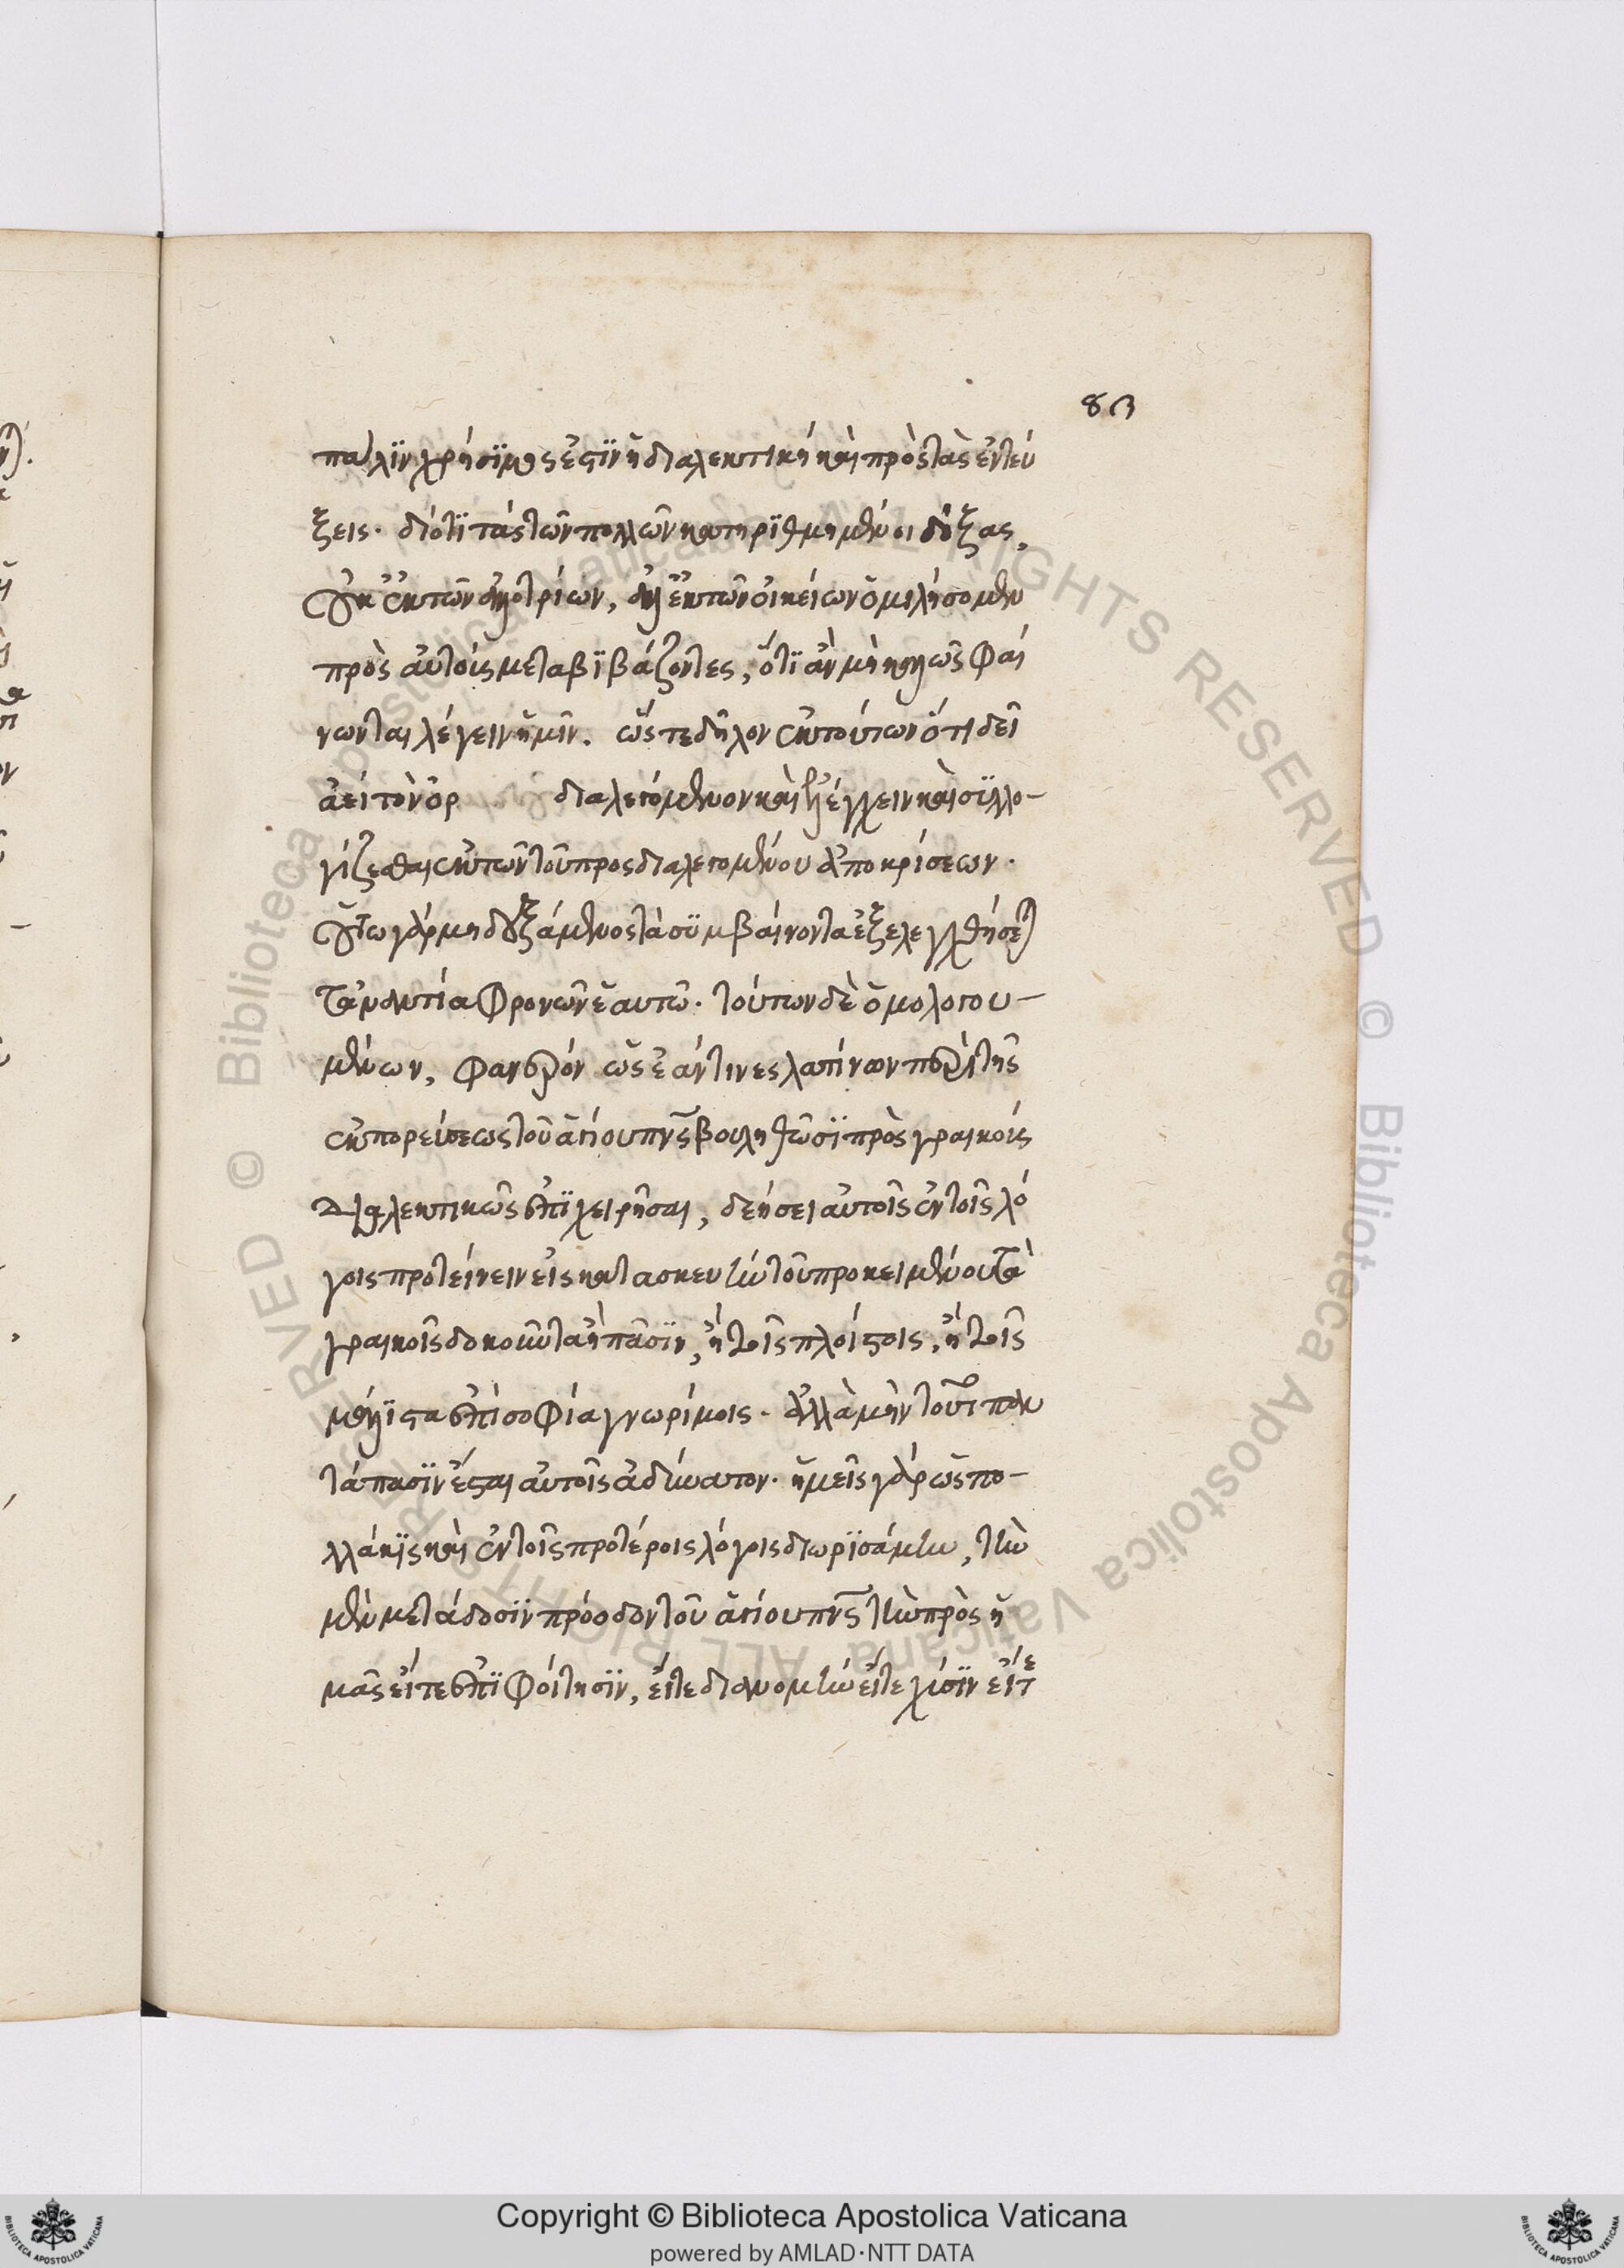 83
πάλϊν χρήσϊμος ἐστϊν ἡ διαλεκτικὴ καὶ πρὸς τὰς ἐντεύ
ξεις· διότϊ τὰς τῶν πολλῶν κατηρϊθμημένοι δόξας,
οὐκ ἐκ τῶν ἀλλοτρίων, ἀλλ' ἐκ τῶν οἰκείων ὁμιλήσομεν
πρὸς αὐτοὺς μεταβϊβάζοντες, ὅτϊ ἂν μὴ καλῶς φαί
νωνται λέγειν ἡμῖν. ὥστε δῆλον ἐκ τούτων ὅτι δεῖ
ἀεὶ τὸν ὀρ διαλεγόμενον καὶ ἐξελέγχειν καὶ σϋλλο-
γίζεσθαι ἐκ τῶν τοῦ προσδιαλεγομένου ἀποκρίσεων.
οὕτω γὰρ μὴ δεξάμενος τὰ σϋμβαίνοντα ἐξελεγχθήσεται
τἀναντία φρονῶν ἑαυτῷ. τούτων δὲ ὁμολογου-
μένων, φανερὸν ὡς ἐάν τινες λατίνων περὶ τῆς
ἐκπορεύσεως τοῦ ἁγίου πνς βουληθῶσϊ πρὸς γραικοὺς
διαλεκτικῶς ἐπϊχειρῆσαι, δεήσει αὐτοῖς ἐν τοῖς λό
γοις προτείνειν εἰς κατασκευὴν τοῦ προκειμένου τὰ
γραικοῖς δοκοῦντα ἢ πᾶσϊν, ἢ τοῖς πλείστοις, ἢ τοῖς
μάλϊστα ἐπὶ σοφίᾳ γνωρίμοις. ἀλλὰ μὴν τοῦτο παν
τάπασϊν ἔσται αὐτοῖς ἀδύνατον. ἡμεῖς γὰρ ὡς πο-
λλάκϊς καὶ ἐν τοῖς προτέροις λόγοις διωρϊσάμην, τὴν
μὲν μετάδοσϊν πρόοδον τοῦ ἁγίου πνς τὴν πρὸς ἡ
μᾶς εἴτε ἐπϊφοίτησϊν, εἴτε διανομὴν εἴτε χύσϊν εἴτε
Copyright © Biblioteca Apostolica Vaticana
powered by AMLAD·NTT DATA